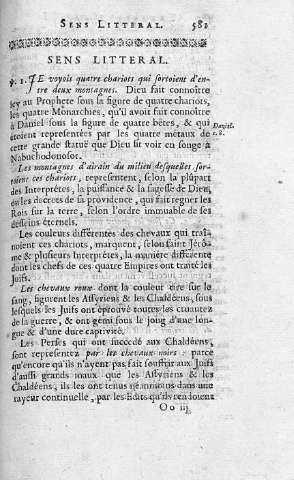 SENS LITTERAL. 581
SENS LITTERAL.
℣. 1. JE voyois quatre chariots qui sortoient d'en-
tre deux montagnes. Dieu fait connoître
icy au Prophete sous la figure de quatre chariots,
les quatre Monarchies, qu'il avoit fait connoître
à Daniel sous la figure de quatre bêtes, & qui
étoient representées par les quatre métaux de
cette grande statuë que Dieu fit voir en songe à
Nabuchodonosor.
Daniel.
Les montagnes d'airain du milieu desquelles sor-
tirent ces chariots, representent, selon la plûpart
des Interprétes, la puissance & la sagesse de Dieu,
ou les decrets de sa providence, qui fait regner les
Rois sur la terre, selon l'ordre immuable de ses
desseins éternels.
Les couleurs différentes des chevaux qui traî-
noient ces chariots, marquent, selon saint Jérô-
me & plusieurs Interprétes, la maniére différente
dont les chefs de ces quatre Empires ont traité les
Juifs.
Les chevaux roux dont la couleur tire sur le
sang, figurent les Assyriens & les Chaldéens, sous
lesquels les Juifs ont éprouvé toutes les cruautez
de la guerre, & ont gémi sous le joug d'une lon-
gue & d'une dure captivité.
Les Perses qui ont succedé aux Chaldéens,
sont representez par les chevaux noirs; parce
qu'encore qu'ils n'ayent pas fait souffrir aux Juifs
d'aussi grands maux que les Assyriens & les
Chaldéens, ils les ont tenus néanmoins dans une
frayeur continuelle, par les Edits qu'ils rendoient
Oo iij